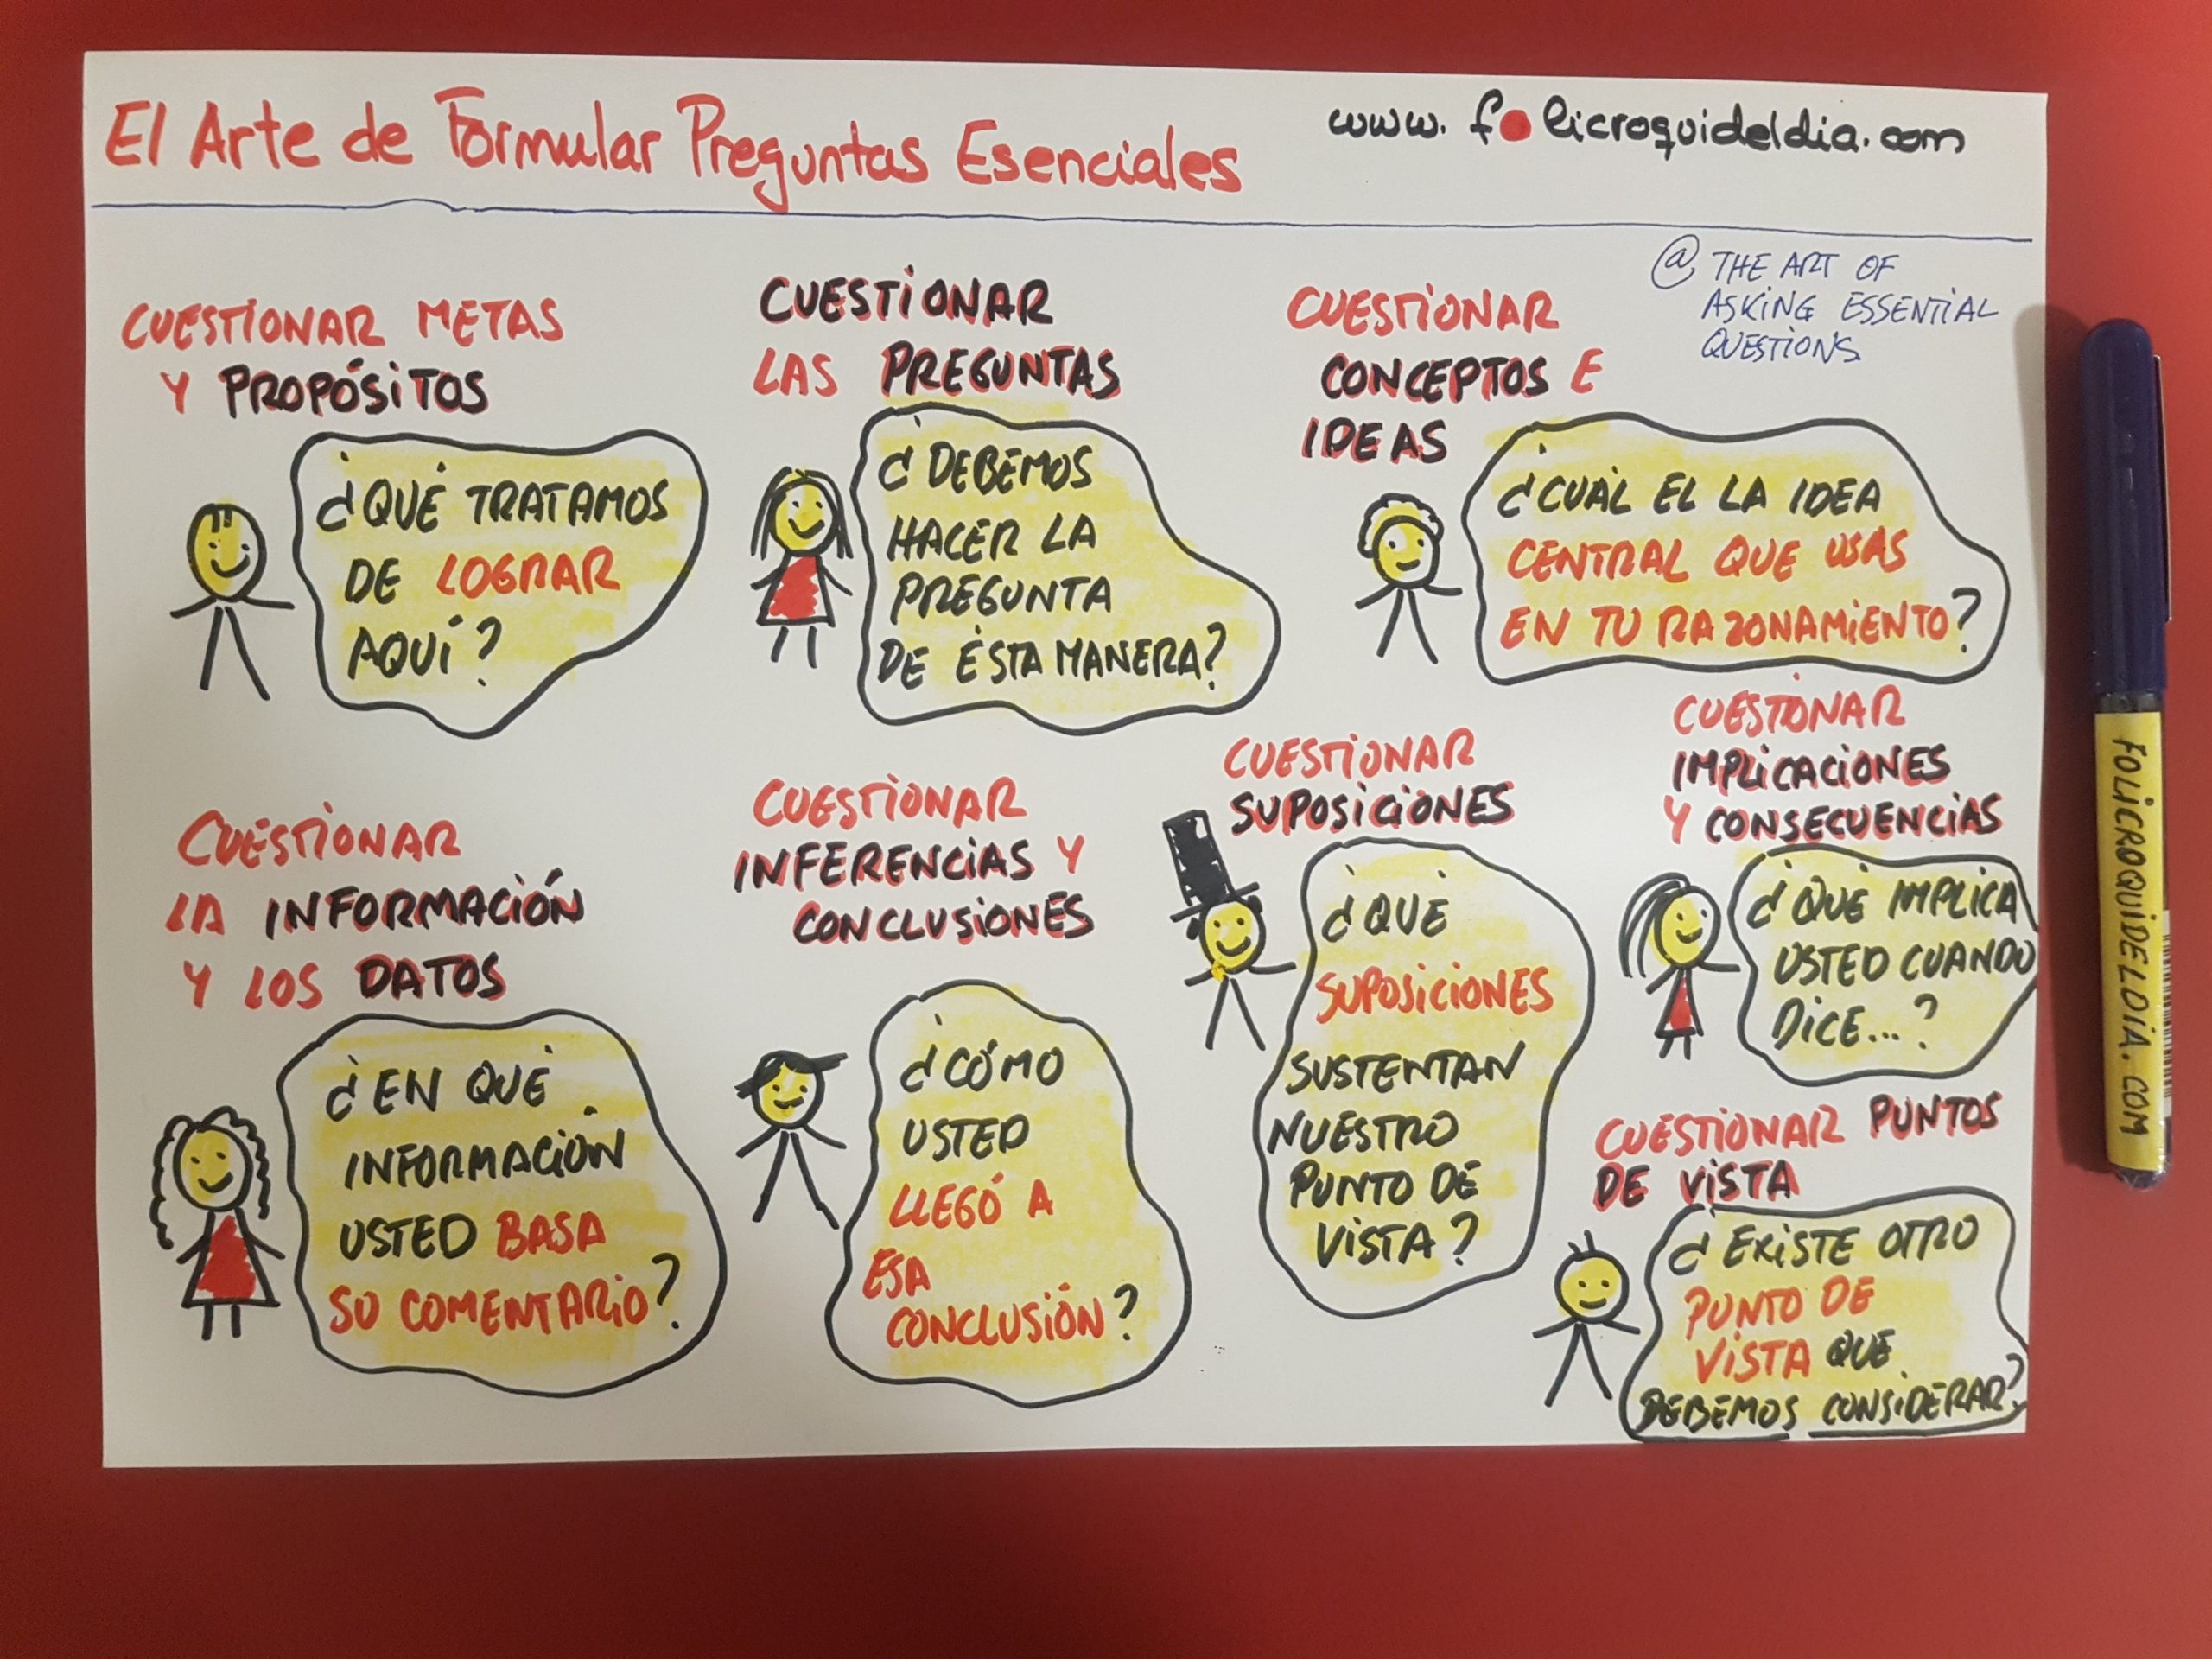 El Arte de Formular Preguntas Esenciales
www.folicroquideldia.com
@ THE ART OF
ASKING ESSENTIAL
QUESTIONS
CUESTIONAR METAS
Y PROPÓSITOS
¿QUÉ TRATAMOS
DE LOGRAR
AQUÍ?
CUESTIONAR
LAS PREGUNTAS
¿DEBEMOS
HACER LA
PREGUNTA
DE ÉSTA MANERA?
CUESTIONAR
CONCEPTOS E
IDEAS
¿CUÁL EL LA IDEA
CENTRAL QUE USAS
EN TU RAZONAMIENTO?
CUESTIONAR
LA INFORMACIÓN
Y LOS DATOS
¿EN QUÉ
INFORMACIÓN
USTED BASA
SU COMENTARIO?
CUESTIONAR
INFERENCIAS Y
CONCLUSIONES
¿CÓMO
USTED
LLEGÓ A
ESA
CONCLUSIÓN?
CUESTIONAR
SUPOSICIONES
¿QUÉ
SUPOSICIONES
SUSTENTAN
NUESTRO
PUNTO DE
VISTA?
CUESTIONAR
IMPLICACIONES
Y CONSECUENCIAS
¿QUÉ IMPLICA
USTED CUANDO
DICE...?
CUESTIONAR PUNTOS
DE VISTA
¿EXISTE OTRO
PUNTO DE
VISTA QUE
DEBEMOS CONSIDERAR?
FOLICROQUIDELDIA.COM